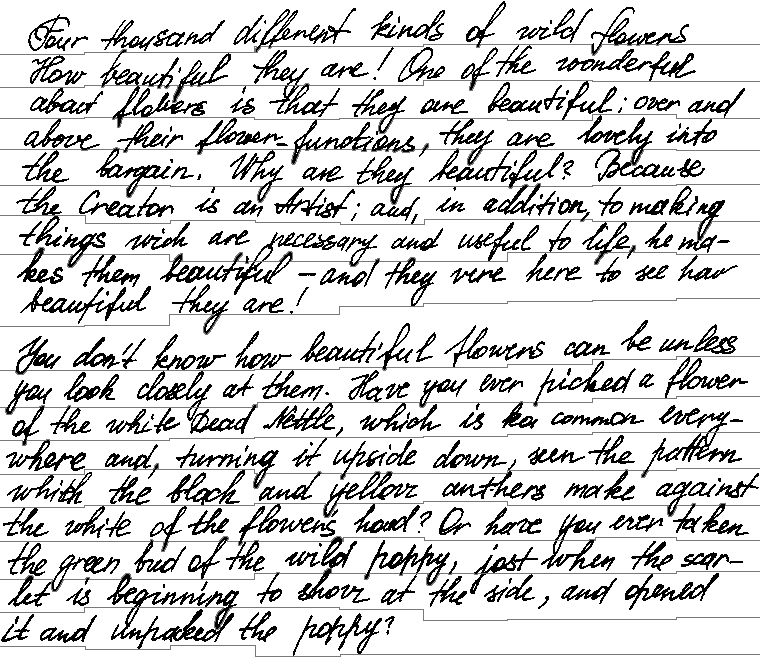 Four thousand different kinds of wild flowers
How beautiful they are! One of the wonderful
about flowers is that they are beautiful; over and
above their flower-functions, they are lovely into
the bargain. Why are they beautiful? Because
the Creator is an Artist; and, in addition, to making
things wich are necessary and useful to life, he ma-
kes them beautiful – and they were here to see how
beautiful they are!
You don't know how beautiful flowers can be unless
you look closely at them. Have you ever picked a flower
of the white Dead Nettle, which is common every-
where and, turning it upside down, seen the pattern
which the black and yellow anthers make against
the white of the flowers hood? Or have you ever taken
the green bud of the wild poppy, jost when the scar-
let is beginning to show at the side, and opened
it and unpacked the poppy?